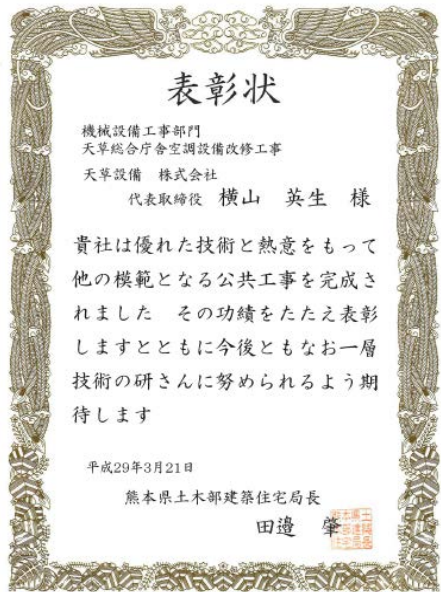 表彰状
機械設備工事部門
天草総合庁舎空調設備改修工事
天草設備　株式会社
代表取締役　横山　英生　様
貴社は優れた技術と熱意をもって
他の模範となる公共工事を完成さ
れました　その功績をたたえ表彰
しますとともに今後ともなお一層
技術の研さんに努められるよう期
待します
平成29年3月21日
熊本県土木部建築住宅局長
田邉　肇